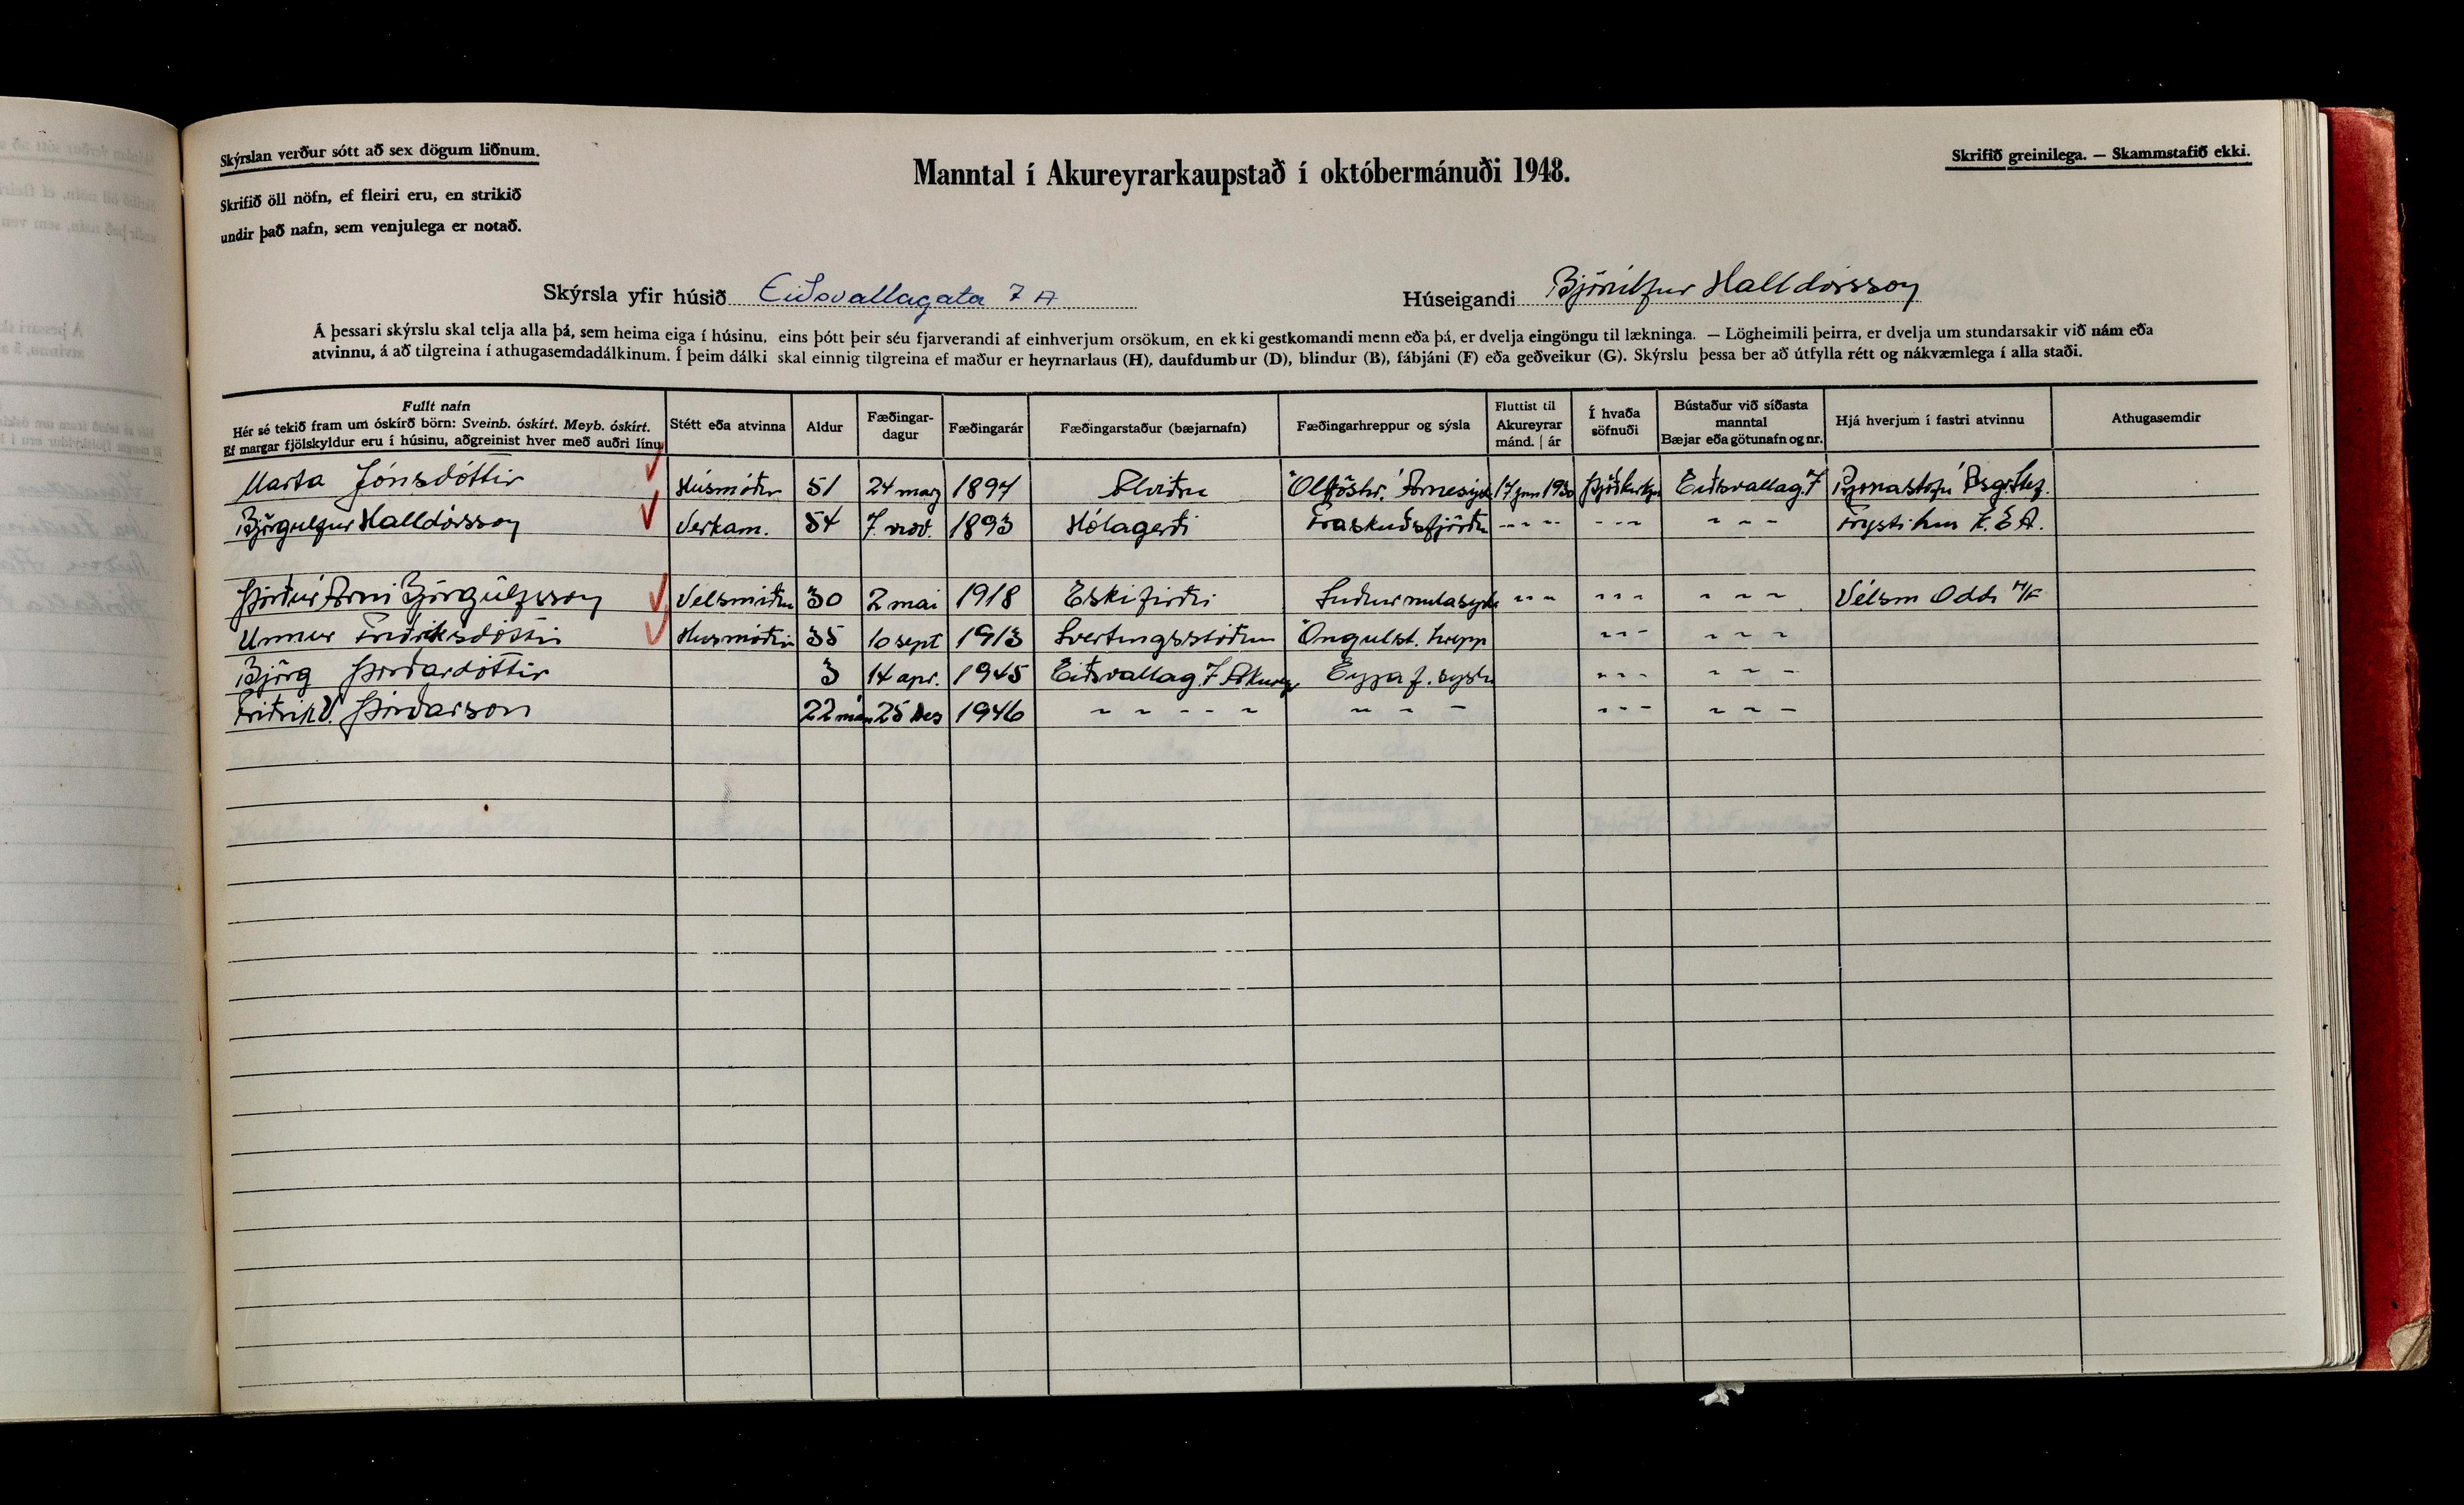 Skýrslan verður sótt að sex dögum liðnum.
Skrifið öll nöfn, ef fleiri eru, en strikið
undir það nafn, sem venjulega er notað.
Manntal í Akureyrarkaupstað í októbermánuði 1948.
Skrifið greinilega. — Skammstafið ekki.
Skýrsla yfir húsið Eiðsvallagata 7 A
Húseigandi Björúlfur Halldórsson
Á þessari skýrslu skal telja alla þá, sem heima eiga í húsinu, eins þótt þeir séu fjarverandi af einhverjum orsökum, en ekki gestkomandi menn eða þá, er dvelja eingöngu til lækninga. — Lögheimili þeirra, er dvelja um stundarsakir við nám eða
atvinnu, á að tilgreina í athugasemdadálkinum. Í þeim dálki skal einnig tilgreina ef maður er heyrnarlaus (H), daufdumbur (D), blindur (B), fábjáni (F) eða geðveikur (G). Skýrslu þessa ber að útfylla rétt og nákvæmlega í alla staði.
Fullt nafn
Hér sé tekið fram um óskírð börn: Sveinb. óskírt. Meyb. óskírt.
Ef margar fjölskyldur eru í húsinu, aðgreinist hver með auðri línu
Stétt eða atvinna
Aldur
Fæðingar-
dagur
Fæðingarár
Fæðingarstaður (bæjarnafn)
Fæðingarhreppur og sýsla
Fluttist til
Akureyrar
mánd. | ár
Í hvaða
söfnuði
Bústaður við síðasta
manntal
Bæjar eða götunafn og nr.
Hjá hverjum í fastri atvinnu
Athugasemdir
Marta Jónsdóttir Húsmóðir 51 24 marz 1897 17 jun 1930 Eiðsvallag. 7
Björgulfur Halldórsson Verkam. 54 7. nov. 1893 Hólagerði Fáskuðsfjörður - - - - - - - - - - Frystihus K.E.A.
Þórður Árni Björgúlfsson Velsmiður 30 2 mai 1918 Eskifirði Suðurmulasysla - - - - - - - - - Vélsm Oddi H/F
Unnur Friðriksdóttir Husmóðir 35 10 sept 1913 Svertingsstöðum Öngulst. hrepp - - - - - -
Björg Þórðardóttir 3 14 apr. 1945 Eiðsvallag 7 Akurey Eyjaf. sysla - - - - - -
Friðrik V. Þórðarson 22 mán 25 des 1946 - - - - - - - - - - - - - -